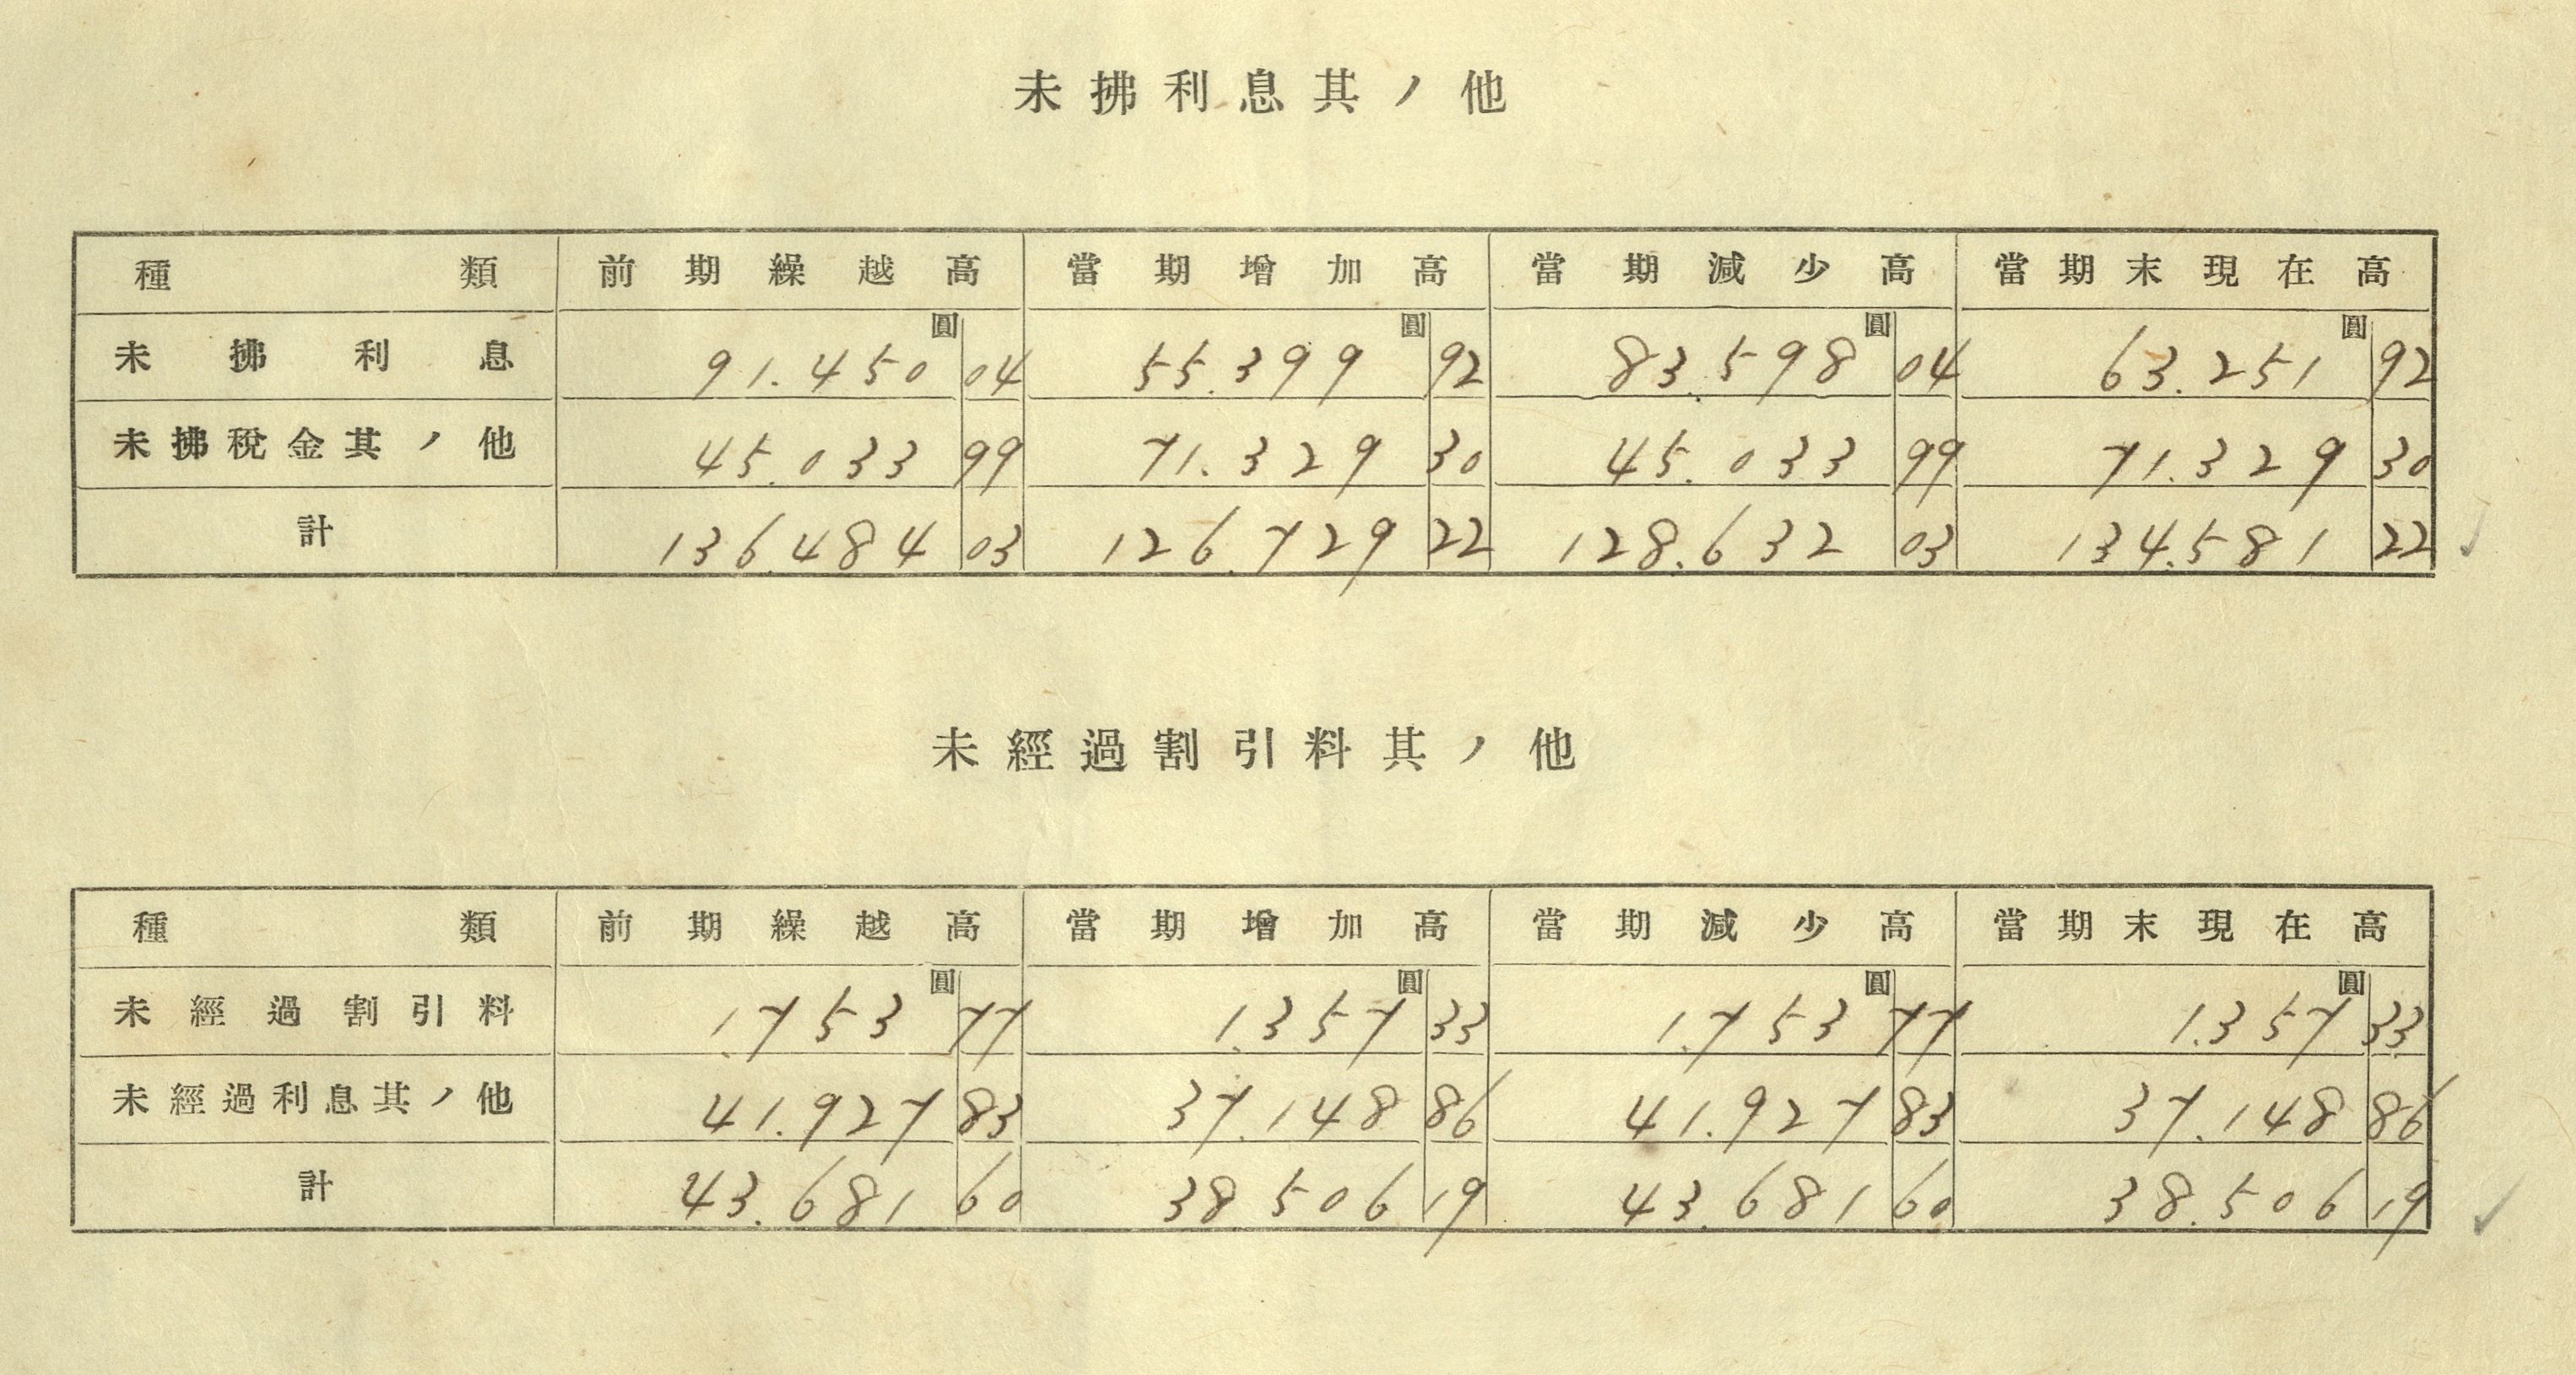 未拂利息其ノ他
種類 前期繰越高 當期增加高 當期減少高 當期末現在高
圓 圓 圓 圓
未拂利息 91.450 04 55.399 92 83.598 04 63.251 92
未拂稅金其ノ他 45.033 99 71.329 30 45.033 99 71.329 30
計 136.484 03 126.729 22 128.632 03 134.581 22
未經過割引料其ノ他
種類 前期繰越高 當期增加高 當期減少高 當期末現在高
圓 圓 圓 圓
未經過割引料 1.753 77 1.357 33 1.753 77 1.357 33
未經過利息其ノ他 41.927 83 37.148 86 41.927 83 37.148 86
計 43.681 60 38.506 19 43.681 60 38.506 19